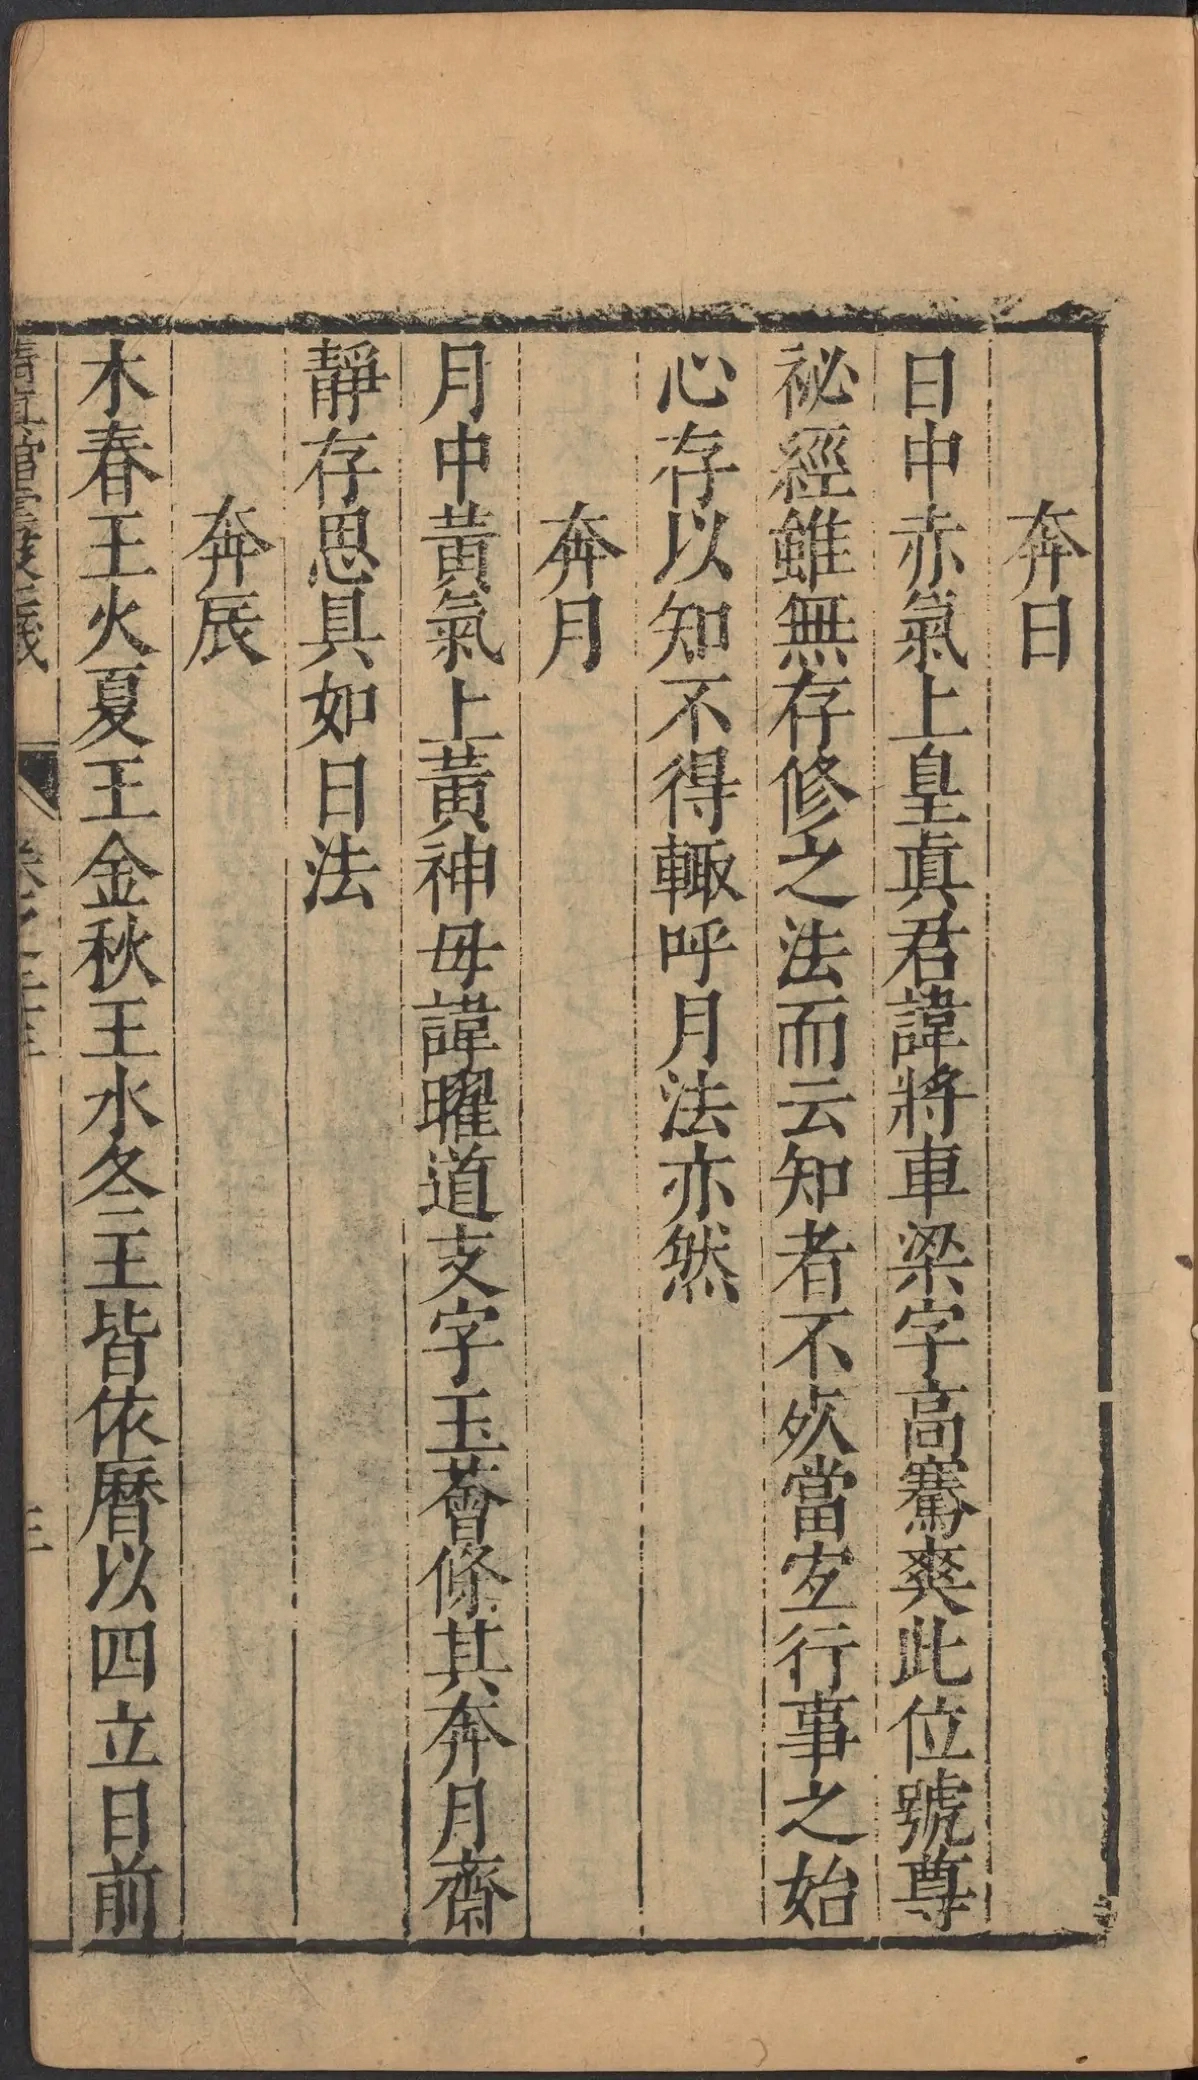 奔日
日中赤氣上皇眞君諱將車梁字高騫爽此位號尊
祕經雖無存修之法而云知者不死當宜行事之始
心存以知不得輙呼月法亦然
奔月
月中黃氣上黃神母諱曜道支字玉薈條其奔月齋
靜存思具如日法
奔辰
木春王火夏王金秋王水冬王皆依曆以四立日前
三